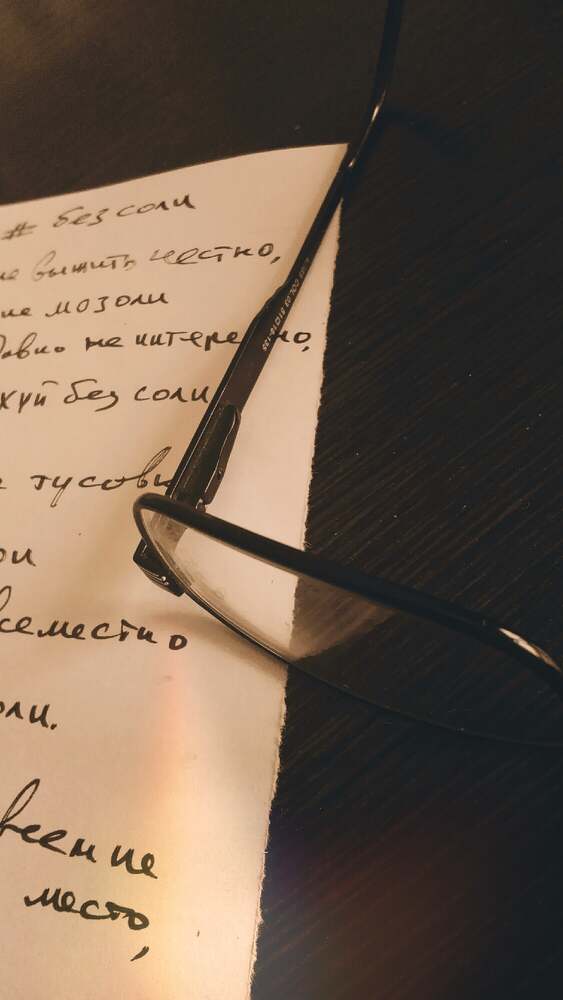 # без соли
не выжить честно,
ие мозоли
давно не интересно,
хуй без соли
тусовк
ои
всеместно
оли.
всем не
место,